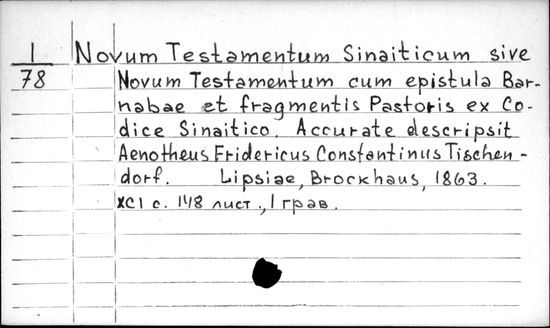 1 Novum Testamentum Sinaiticum sive
78 Novum Testamentum cum epistula Bar-
nabae et fragmentis Pastoris ex Co-
dice Sinaitico. Accurate descripsit
Aenotheus Fridericus Constantinus Tischen-
dorf. Lipsiae, Brockhaus, 1863.
XCI с. 148 лист., 1 грав.